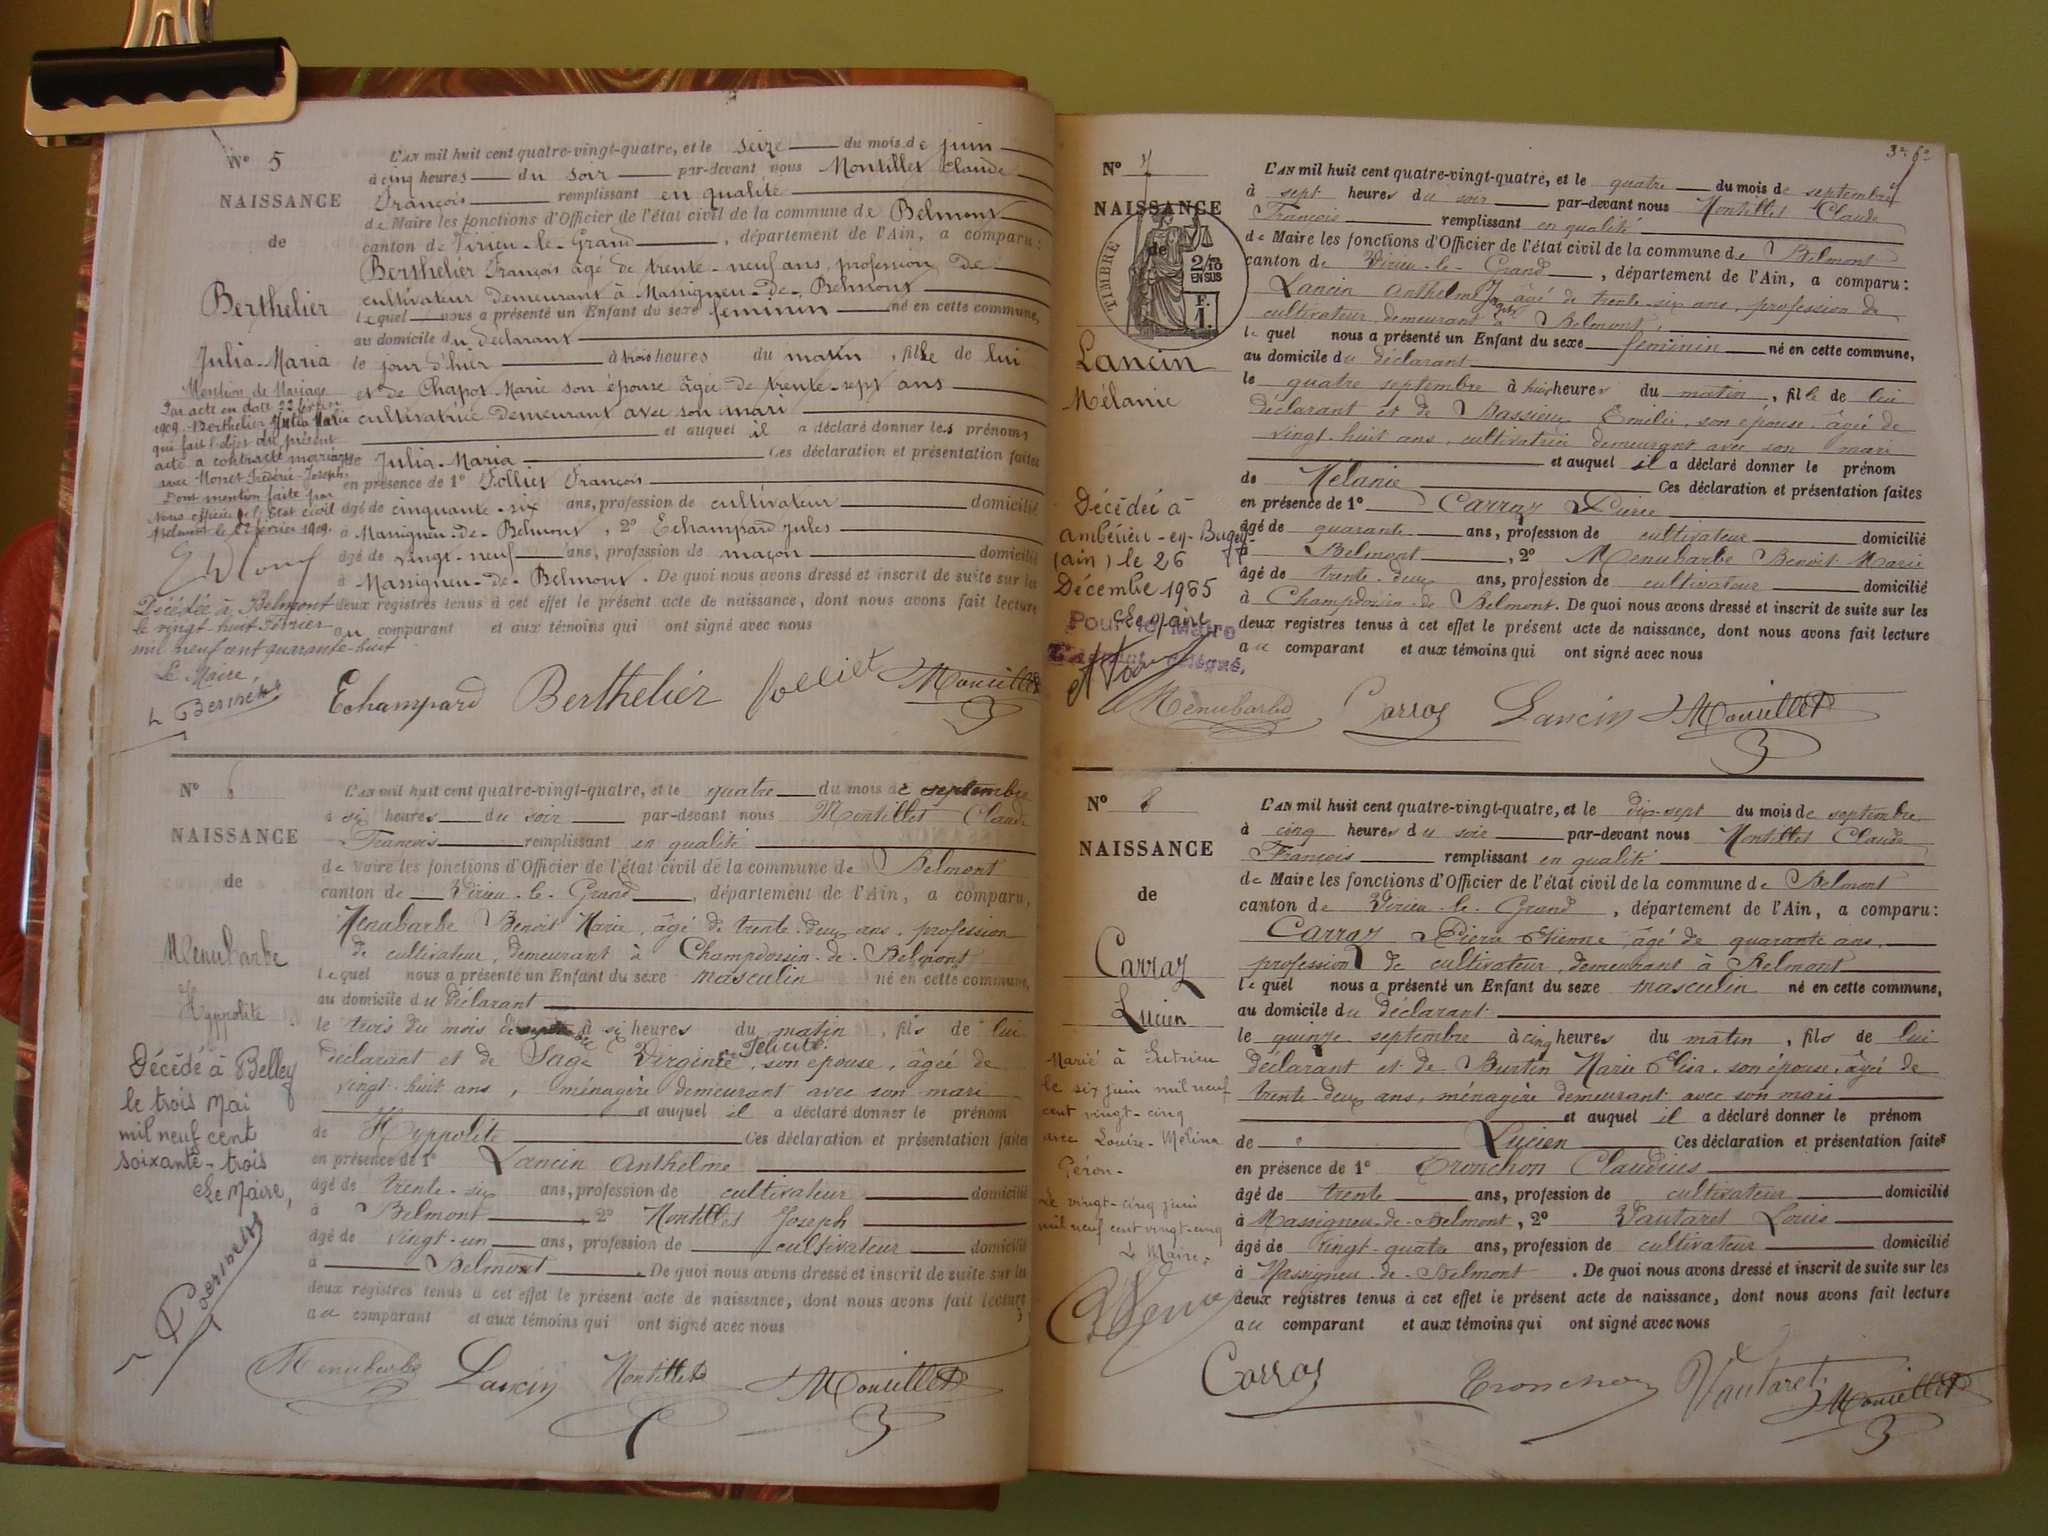 Nº 5
NAISSANCE
de
Berthelier
Julia-Maria
Mention de Mariage
Par acte en date 22 février
1909. Berthelier Julia Maria
qui fait l'objet du présent
acte a contracté mariage
avec Monet Frédéric-Joseph.
Dont mention faite par
Nous officier de l'Etat civil
Belmont le 22 février 1909.
Décédée à Belmont
le vingt-huit Février
mil neuf cent quarante-huit
Le Maire,
L'AN mil huit cent quatre-vingt-quatre, et le seize du mois de juin
à cinq heures du soir par-devant nous Montillet Claude
François remplissant en qualité
de Maire les fonctions d'Officier de l'état civil de la commune de Belmont
canton de Virieu-le-Grand, département de l'Ain, a comparu:
Berthelier François âgé de trente-neuf ans, profession de
cultivateur demeurant à Massigneu-de-Belmont
lequel nous a présenté un Enfant du sexe féminin né en cette commune,
au domicile du déclarant
le jour d'hier à trois heures du matin, fille de lui
et de Chapot Marie son épouse âgée de trente-sept ans
cultivatrice demeurant avec son mari
et auquel il a déclaré donner les prénoms
de Julia-Maria Ces déclaration et présentation faites
en présence de 1º Jolliet François
âgé de cinquante-six ans, profession de cultivateur domicilié
à Massigneu-de-Belmont, 2º Echampard Jules
âgé de vingt-neuf ans, profession de maçon domicilié
à Massigneu-de-Belmont. De quoi nous avons dressé et inscrit de suite sur les
deux registres tenus à cet effet le présent acte de naissance, dont nous avons fait lecture
au comparant et aux témoins qui ont signé avec nous
Echampard Berthelier Jolliet Montillet
Nº 6
NAISSANCE
de
Menubarbe
Hyppolite
Décédé à Belley
le trois Mai
mil neuf cent
soixante-trois
Le Maire,
L'AN mil huit cent quatre-vingt-quatre, et le quatre du mois de septembre
à six heures du soir par-devant nous Montillet Claude
François remplissant en qualité
de Maire les fonctions d'Officier de l'état civil de la commune de Belmont
canton de Virieu-le-Grand, département de l'Ain, a comparu,
Menubarbe Benoit Marie, âgé de trente-deux ans, profession
de cultivateur, demeurant à Champdossin-de-Belmont
lequel nous a présenté un Enfant du sexe masculin né en cette commune,
au domicile du déclarant
le trois du mois de septembre à six heures du matin, fils de lui
déclarant et de Sage Virginie Félicité, son épouse, âgée de
vingt-huit ans, ménagère demeurant avec son mari
et auquel il a déclaré donner le prénom
de Hyppolite Ces déclaration et présentation faites
en présence de 1º Lancin Anthelme
âgé de trente-six ans, profession de cultivateur domicilié
à Belmont 2º Montillet Joseph
âgé de vingt-un ans, profession de cultivateur domicilié
à Belmont. De quoi nous avons dressé et inscrit de suite sur les
deux registres tenus à cet effet le présent acte de naissance, dont nous avons fait lecture
au comparant et aux témoins qui ont signé avec nous
Menubarbe Lancin Montillet Montillet
Nº 7
NAISSANCE
de
TIMBRE
2/10
EN SUS
F.
1.
Lancin
Mélanie
Décédée à
Ambérieu-en-Bugey
(Ain) le 26
Décembre 1965
Le Maire
Pour le Maire
L'adjoint délégué,
L'AN mil huit cent quatre-vingt-quatre, et le quatre du mois de septembre
à sept heures du soir par-devant nous Montillet Claude
François remplissant en qualité
de Maire les fonctions d'Officier de l'état civil de la commune de Belmont
canton de Virieu-le-Grand, département de l'Ain, a comparu:
Lancin Anthelme âgé de trente-six ans, profession de
cultivateur demeurant à Belmont,
lequel nous a présenté un Enfant du sexe féminin né en cette commune,
au domicile du déclarant
le quatre septembre à huit heures du matin, fille de lui
déclarant et de Bassieu Emélie, son épouse, âgée de
vingt-huit ans, cultivatrice demeurant avec son mari
et auquel il a déclaré donner le prénom
de Mélanie Ces déclaration et présentation faites
en présence de 1º Carraz Pierre
âgé de quarante ans, profession de cultivateur domicilié
à Belmont, 2º Menubarbe Benoit Marie
âgé de trente-deux ans, profession de cultivateur domicilié
à Champdossin-de-Belmont. De quoi nous avons dressé et inscrit de suite sur les
deux registres tenus à cet effet le présent acte de naissance, dont nous avons fait lecture
au comparant et aux témoins qui ont signé avec nous
Menubarbe Carraz Lancin Montillet
Nº 8
NAISSANCE
de
Carraz
Lucien
Marié à Lutrieu
le six juin mil neuf
cent vingt-cinq
avec Louise-Mélina
Géron-
Le vingt-cinq juin
mil neuf cent vingt-cinq
Le Maire,
L'AN mil huit cent quatre-vingt-quatre, et le dix-sept du mois de septembre
à cinq heures du soir par-devant nous Montillet Claude
François remplissant en qualité
de Maire les fonctions d'Officier de l'état civil de la commune de Belmont
canton de Virieu-le-Grand, département de l'Ain, a comparu:
Carraz Pierre Etienne, âgé de quarante ans,
profession de cultivateur, demeurant à Belmont
lequel nous a présenté un Enfant du sexe masculin né en cette commune,
au domicile du déclarant
le quinze septembre à cinq heures du matin, fils de lui
déclarant et de Burtin Marie Elisa, son épouse, âgée de
trente-deux ans, ménagère demeurant avec son mari
et auquel il a déclaré donner le prénom
de Lucien Ces déclaration et présentation faites
en présence de 1º Tronchon Claudius
âgé de trente ans, profession de cultivateur domicilié
à Massigneu-de-Belmont, 2º Vautaret Louis
âgé de vingt-quatre ans, profession de cultivateur domicilié
à Massigneu-de-Belmont. De quoi nous avons dressé et inscrit de suite sur les
deux registres tenus à cet effet le présent acte de naissance, dont nous avons fait lecture
au comparant et aux témoins qui ont signé avec nous
Carraz Tronchon Vautaret Montillet